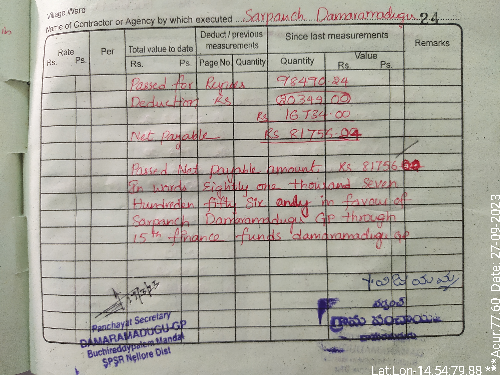 Village Ward
Name of Contractor or Agency by which executed Sarpanch Damaramadugu 24
Rate Per Total value to date Deduct / previous measurements Since last measurements Remarks
Rs. Ps. Rs. Ps. Page No. Quantity Quantity Value Rs. Ps.
Passed for Rupees 98470.24
Deduction Rs 20344.00
Rs 16734.00
Net Payable Rs 81756.00
Passed Net payable amount. Rs 81756.00
In words Eighty one thousand seven
Hundreden fifty Six only in favour of
Sarpanch Damaramadugu GP through
15th finance funds damaramadugu GP
Panchayat Secretary
DAMARAMADUGU-GP
Buchireddypalem Mandal
SPSR Nellore Dist
సర్పంచ్
గ్రామ పంచాయితి
Lat Lon-14.54:79.88 *** Acur:77.60 Date: 27-09-2023